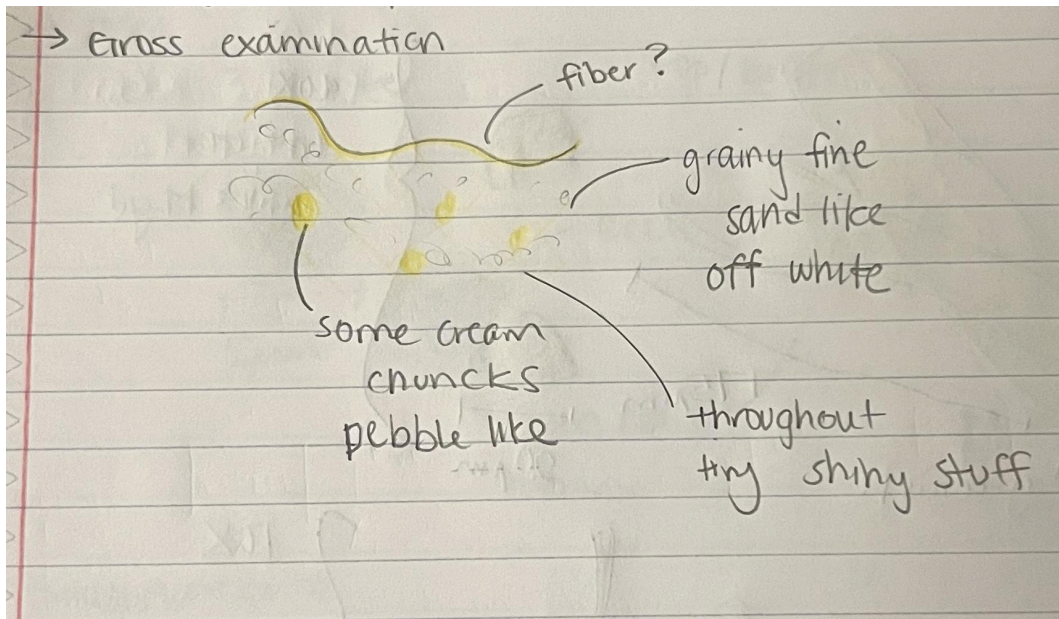 → Gross examination
fiber?
grainy fine
sand like
off white
some cream
chuncks
pebble like
throughout
tiny shiny stuff